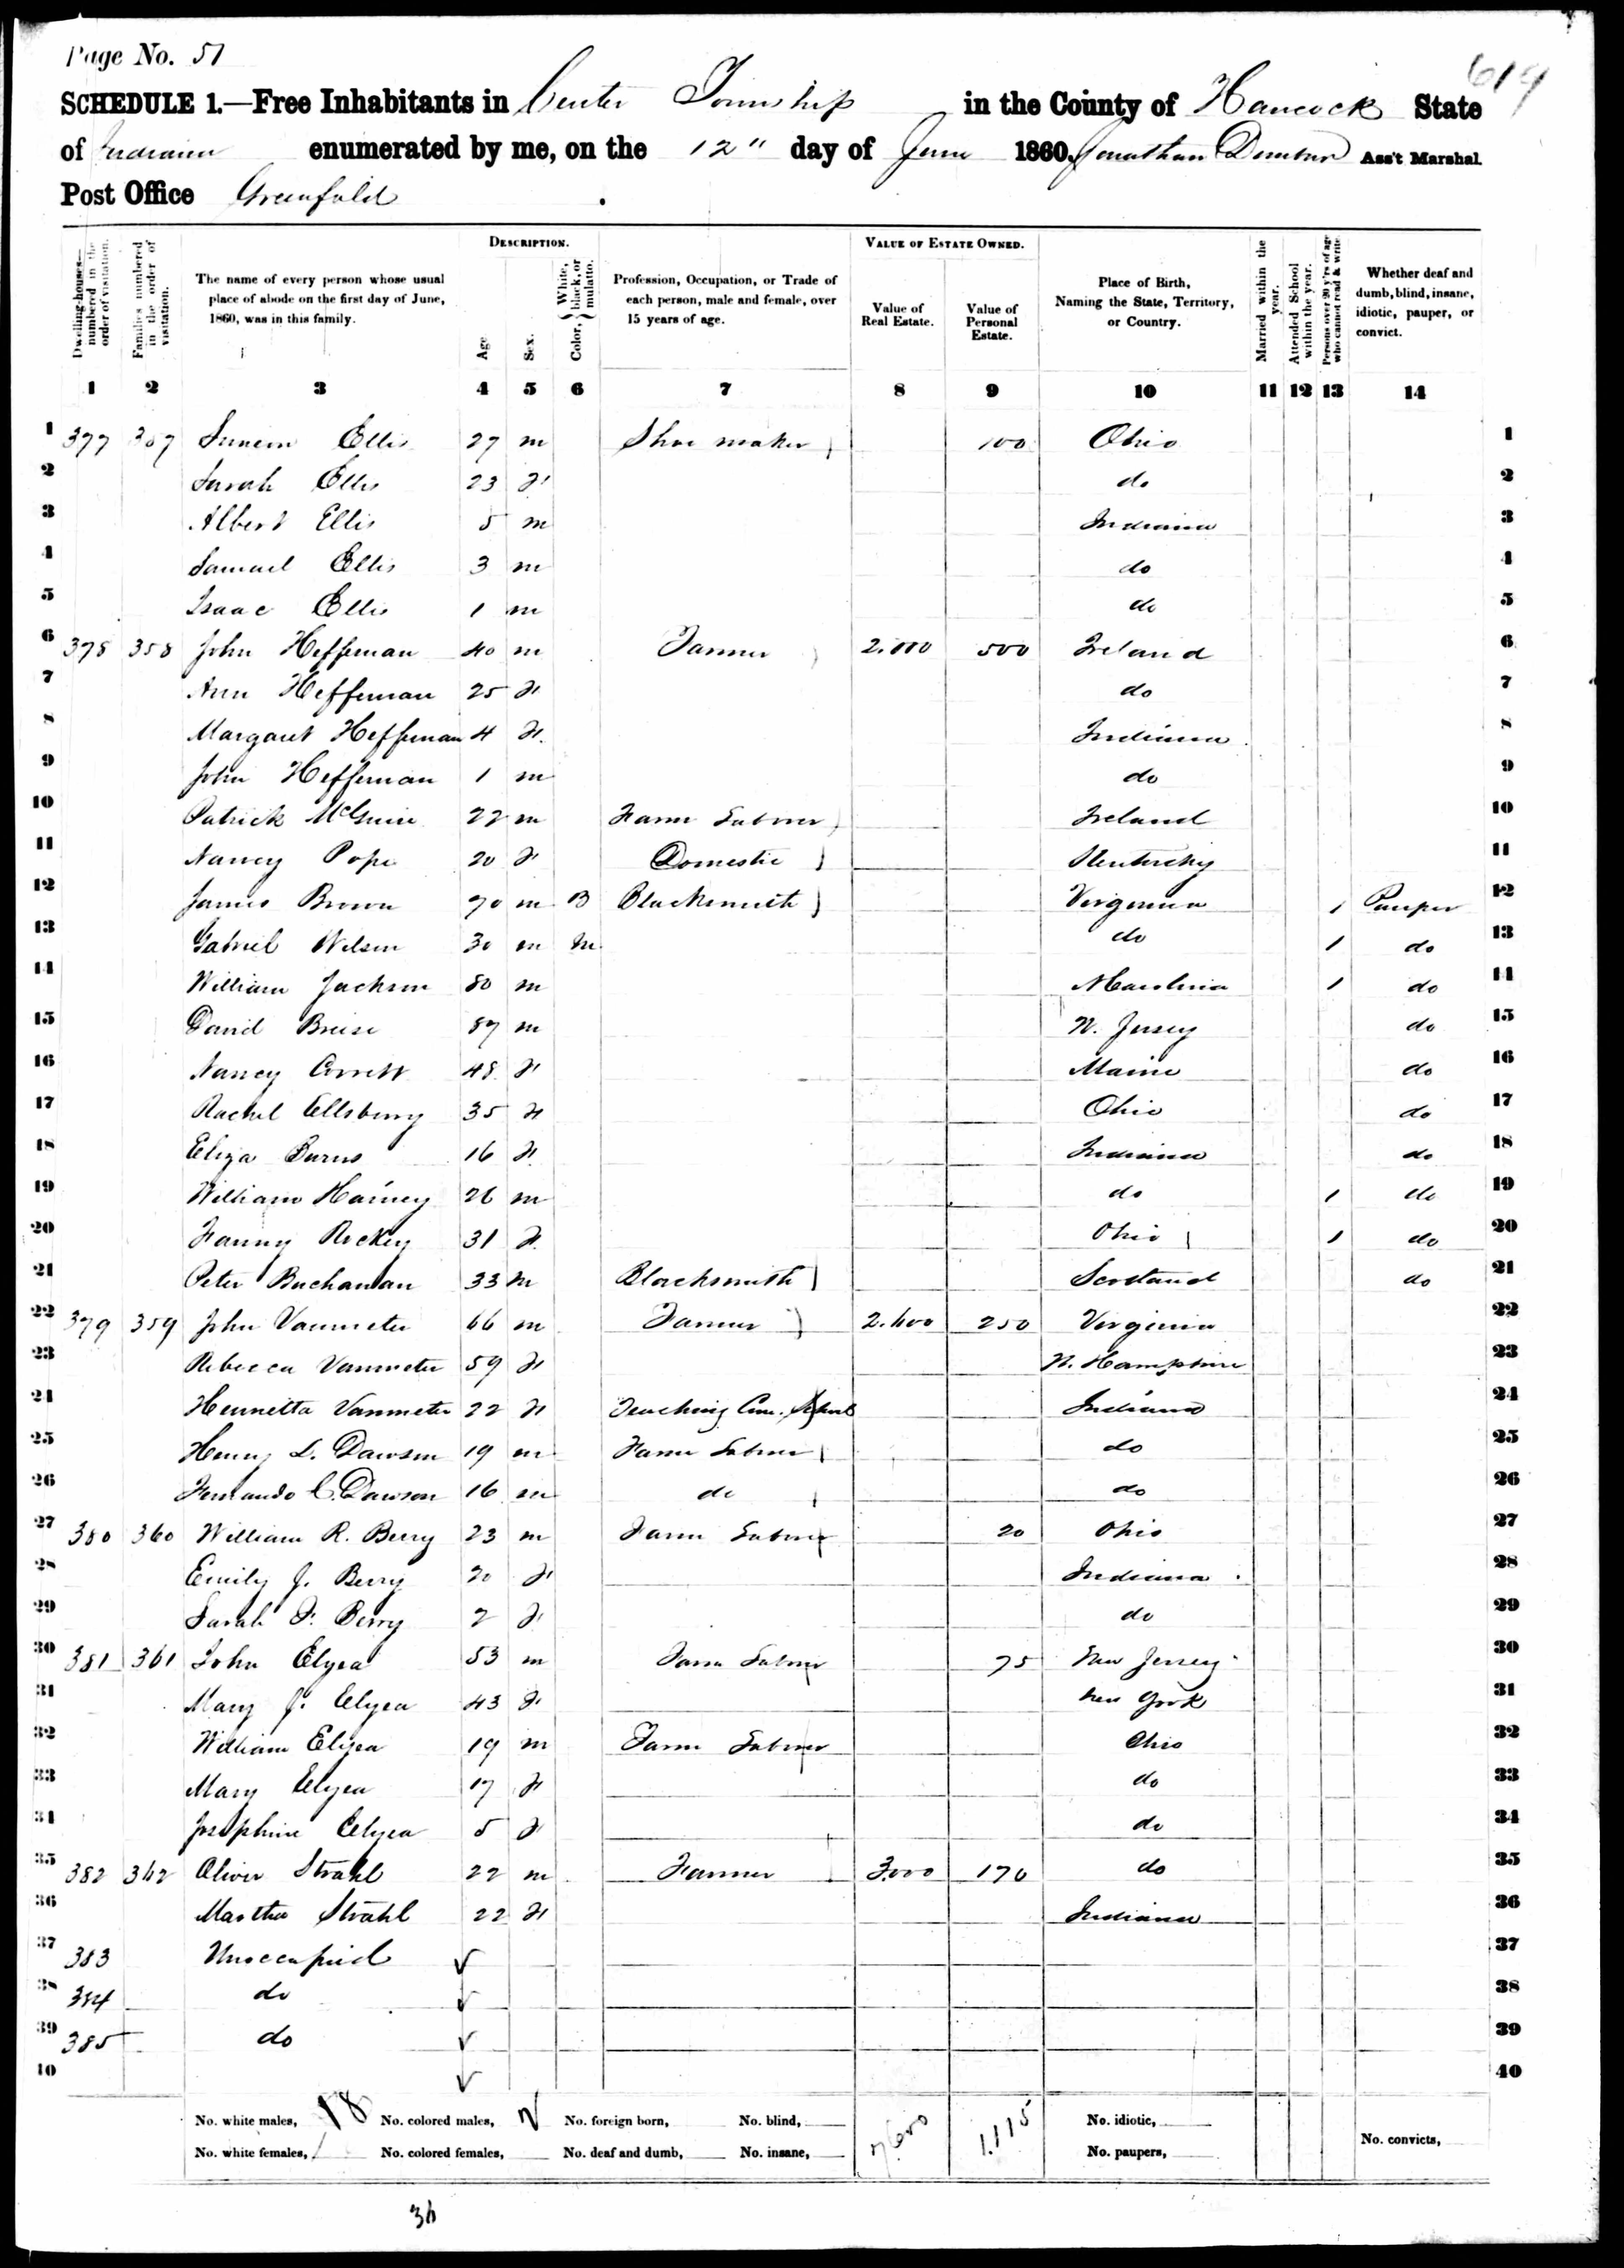 Page No. 51
619
SCHEDULE 1.—Free Inhabitants in Center Township in the County of Hancock State
of Indiana enumerated by me, on the 12" day of June 1860. Jonathan Dunbar Ass't Marshal.
Post Office Greenfield
Dwelling-houses—numbered in the order of visitation.
Families numbered in the order of visitation.
The name of every person whose usual place of abode on the first day of June, 1860, was in this family.
DESCRIPTION.
Age.
Sex.
Color, { White, black, or mulatto.
Profession, Occupation, or Trade of each person, male and female, over 15 years of age.
VALUE OF ESTATE OWNED.
Value of Real Estate.
Value of Personal Estate.
Place of Birth, Naming the State, Territory, or Country.
Married within the year.
Attended School within the year.
Persons over 20 y'rs of age who cannot read & write.
Whether deaf and dumb, blind, insane, idiotic, pauper, or convict.
1 2 3 4 5 6 7 8 9 10 11 12 13 14
1 377 357 Ellis 27 m Shoe maker 100 Ohio 1
2 Sarah Ellis 23 F do 2
3 Albert Ellis 5 m Indiana 3
4 Samuel Ellis 3 m do 4
5 Isaac Ellis 1 m do 5
6 378 358 John Heffernan 40 m Farmer 2.000 500 Ireland 6
7 Ann Heffernan 25 F do 7
8 Margaret Heffernan 4 F. Indiana 8
9 John Heffernan 1 m do 9
10 Patrick McGuire 22 m Farm Laborer Ireland 10
11 Nancy Pope 20 F Domestic Kentucky 11
12 James Brown 70 m B Blacksmith Virginia 1 Pauper 12
13 Gabriel Wilson 30 m M do 1 do 13
14 William Jackson 80 m N Carolina 1 do 14
15 David 87 m N. Jersey do 15
16 Nancy 48 F Maine do 16
17 Rachel Ellsberry 35 F Ohio do 17
18 Eliza Burns 16 F Indiana do 18
19 William Harney 26 m do 1 do 19
20 Fanny Rockey 31 F. Ohio 1 do 20
21 Peter Buchanan 33 m Blacksmith Scotland do 21
22 379 359 John Vanmeter 66 m Farmer 2.600 250 Virginia 22
23 Rebecca Vanmeter 59 F N. Hampshire 23
24 Hennetta Vanmeter 22 F Teaching Com. School Indiana 24
25 Henry L. Dawson 19 m Farm Laborer do 25
26 Fernando C. Dawson 16 m do do 26
27 380 360 William R. Berry 23 m Farm Laborer 20 Ohio 27
28 Emily J. Berry 20 F Indiana 28
29 Sarah F. Berry 2 F do 29
30 381 361 John Elyea 53 m Farm Laborer 75 New Jersey 30
31 Mary J. Elyea 43 F New York 31
32 William Elyea 19 m Farm Laborer Ohio 32
33 Mary Elyea 17 F do 33
34 Josephine Elyea 5 F do 34
35 382 362 Oliver Strahl 22 m Farmer 3.000 170 do 35
36 Martha Strahl 22 F Indiana 36
37 383 Unoccupied 37
38 384 do 38
39 385 do 39
40 40
No. white males, 18 No. colored males, 2 No. foreign born, No. blind, 7600 1.115 No. idiotic,
No. white females, No. colored females, No. deaf and dumb, No. insane, No. paupers, No. convicts,
36